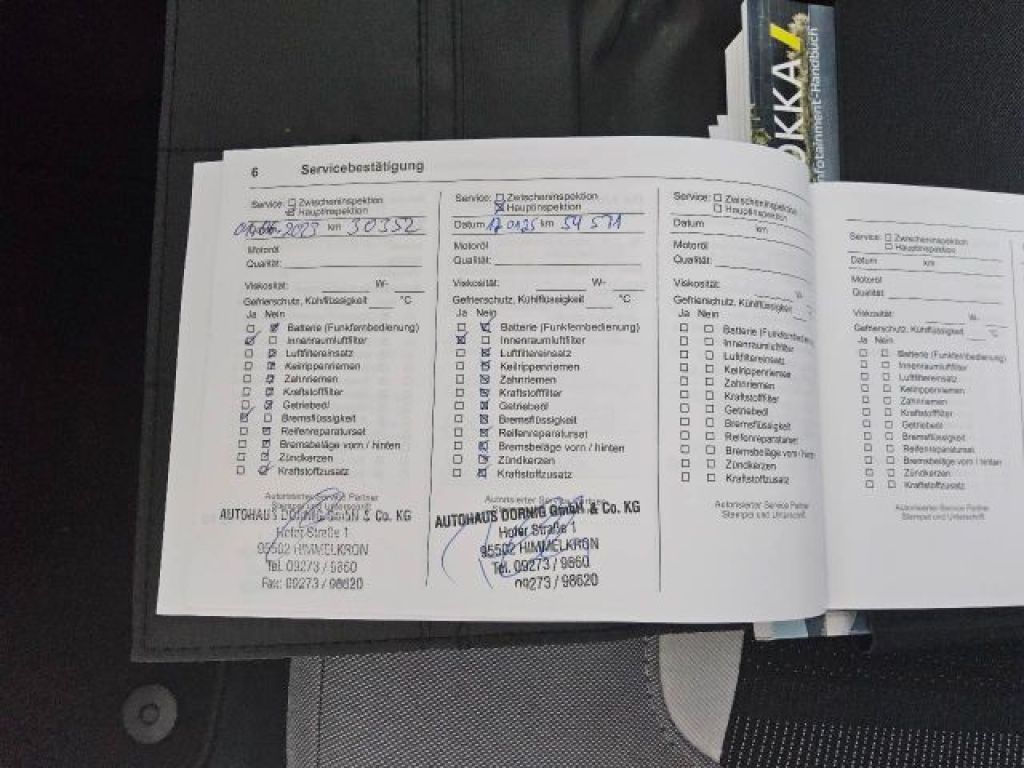 MOKKA
Infotainment-Handbuch
6 Servicebestätigung
Service: Zwischeninspektion
Hauptinspektion
2023 km 30352
Motoröl
Qualität:
Viskosität: W-
Gefrierschutz, Kühlflüssigkeit °C
Ja Nein
Batterie (Funkfernbedienung)
Innenraumluftfilter
Luftfiltereinsatz
Keilrippenriemen
Zahnriemen
Kraftstofffilter
Getriebeöl
Bremsflüssigkeit
Reifenreparaturset
Bremsbeläge vorn / hinten
Zündkerzen
Kraftstoffzusatz
Autorisierter Service Partner
Stempel und Unterschrift
AUTOHAUS DORNIG GmbH & Co. KG
Hofer Straße 1
95502 HIMMELKRON
Tel. 09273 / 9860
Fax: 09273 / 98620
Service: Zwischeninspektion
Hauptinspektion
Datum 17 01 25 km 54 571
Motoröl
Qualität:
Viskosität: W-
Gefrierschutz, Kühlflüssigkeit °C
Ja Nein
Batterie (Funkfernbedienung)
Innenraumluftfilter
Luftfiltereinsatz
Keilrippenriemen
Zahnriemen
Kraftstofffilter
Getriebeöl
Bremsflüssigkeit
Reifenreparaturset
Bremsbeläge vorn / hinten
Zündkerzen
Kraftstoffzusatz
Autorisierter Service Partner
AUTOHAUS DORNIG GmbH & Co. KG
Hofer Straße 1
95502 HIMMELKRON
Tel. 09273 / 9860
09273 / 98620
Service: Zwischeninspektion
Hauptinspektion
Datum km
Motoröl
Qualität:
Viskosität: W-
Gefrierschutz, Kühlflüssigkeit °C
Ja Nein
Batterie (Funkfernbedienung)
Innenraumluftfilter
Luftfiltereinsatz
Keilrippenriemen
Zahnriemen
Kraftstofffilter
Getriebeöl
Bremsflüssigkeit
Reifenreparaturset
Bremsbeläge vorn / hinten
Zündkerzen
Kraftstoffzusatz
Autorisierter Service Partner
Stempel und Unterschrift
Service: Zwischeninspektion
Hauptinspektion
Datum km
Motoröl
Qualität:
Viskosität: W-
Gefrierschutz, Kühlflüssigkeit °C
Ja Nein
Batterie (Funkfernbedienung)
Innenraumluftfilter
Luftfiltereinsatz
Keilrippenriemen
Zahnriemen
Kraftstofffilter
Getriebeöl
Bremsflüssigkeit
Reifenreparaturset
Bremsbeläge vorn / hinten
Zündkerzen
Kraftstoffzusatz
Autorisierter Service Partner
Stempel und Unterschrift